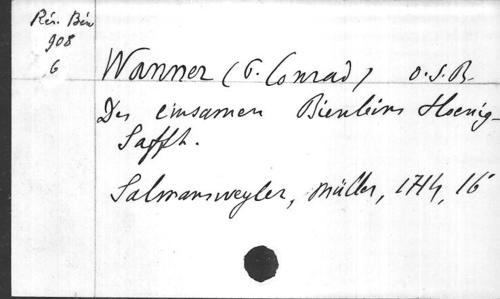 Rés. Bén
908
6
Wanner (G. Conrad) O.S.B.
Des einsamen Bienleins Hoenig-
Safft.
Salmansweyler, Müller, 1714, 16°